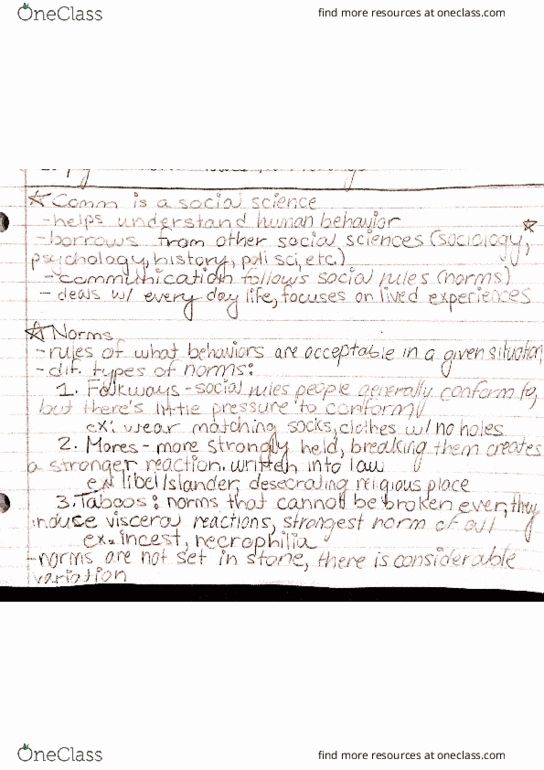 OneClass
find more resources at oneclass.com
☆ Comm is a social science
- helps understand human behavior
- borrows from other social sciences (sociology, ☆
psychology, history, poli sci, etc.)
- communication follows social rules (norms)
- deals w/ every day life, focuses on lived experiences
☆ Norms
- rules of what behaviors are acceptable in a given situation
- dif. types of norms:
1. Folkways - social rules people generally conform to,
but there's little pressure to conform
ex: wear matching socks, clothes w/ no holes
2. Mores - more strongly held, breaking them creates
a stronger reaction. written into law
ex: libel/slander, desecrating religious place
3. Taboos: norms that cannot be broken ever, they
induce visceral reactions, strongest norm of all
ex. incest, necrophilia
- norms are not set in stone, there is considerable
variation
OneClass
find more resources at oneclass.com